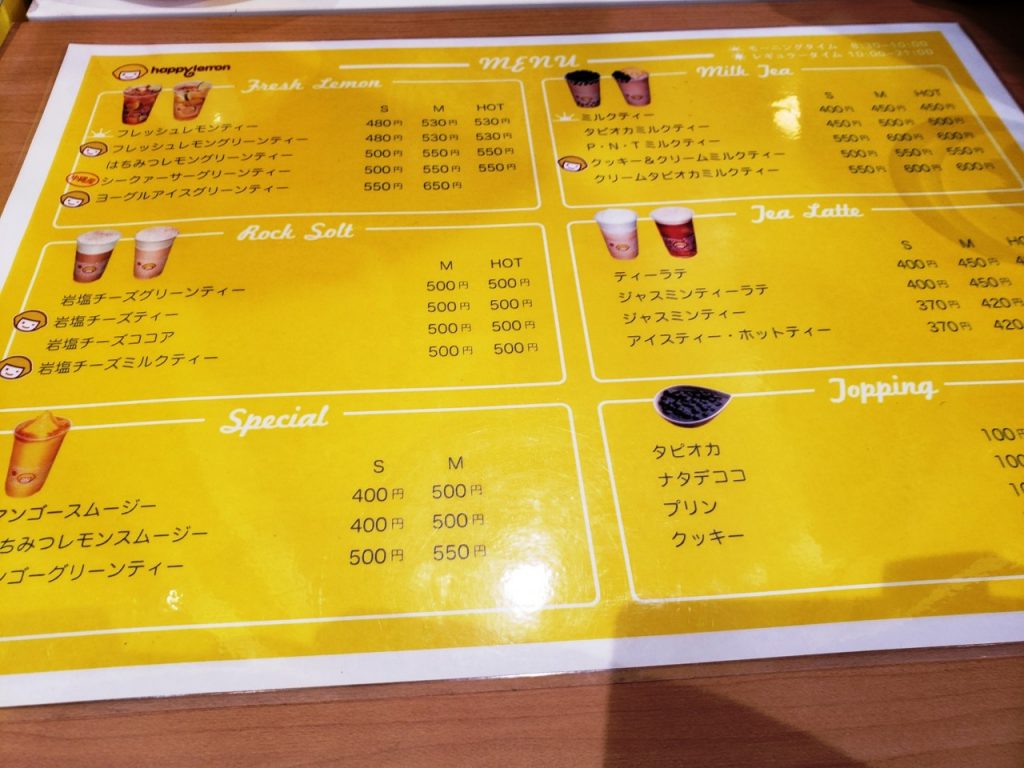 happylemon
MENU
モーニングタイム 8:30-10:00
レギュラータイム 10:00-21:00
Fresh Lemon
S M HOT
フレッシュレモンティー 480円 530円 530円
フレッシュレモングリーンティー 480円 530円 530円
はちみつレモングリーンティー 500円 550円 550円
沖縄産 シークァーサーグリーンティー 500円 550円 550円
ヨーグルアイスグリーンティー 550円 650円
Milk Tea
S M HOT
ミルクティー 400円 450円 450円
タピオカミルクティー 450円 500円 500円
P・N・Tミルクティー 550円 600円 600円
クッキー&クリームミルクティー 500円 550円 550円
クリームタピオカミルクティー 550円 600円 600円
Rock Solt
M HOT
岩塩チーズグリーンティー 500円 500円
岩塩チーズティー 500円 500円
岩塩チーズココア 500円 500円
岩塩チーズミルクティー 500円 500円
Tea Latte
S M
ティーラテ 400円 450円
ジャスミンティーラテ 400円 450円
ジャスミンティー 370円 420円
アイスティー・ホットティー 370円 420
Special
S M
マンゴースムージー 400円 500円
ちみつレモンスムージー 400円 500円
ンゴーグリーンティー 500円 550円
Topping
タピオカ 100円
ナタデココ 100
プリン
クッキー